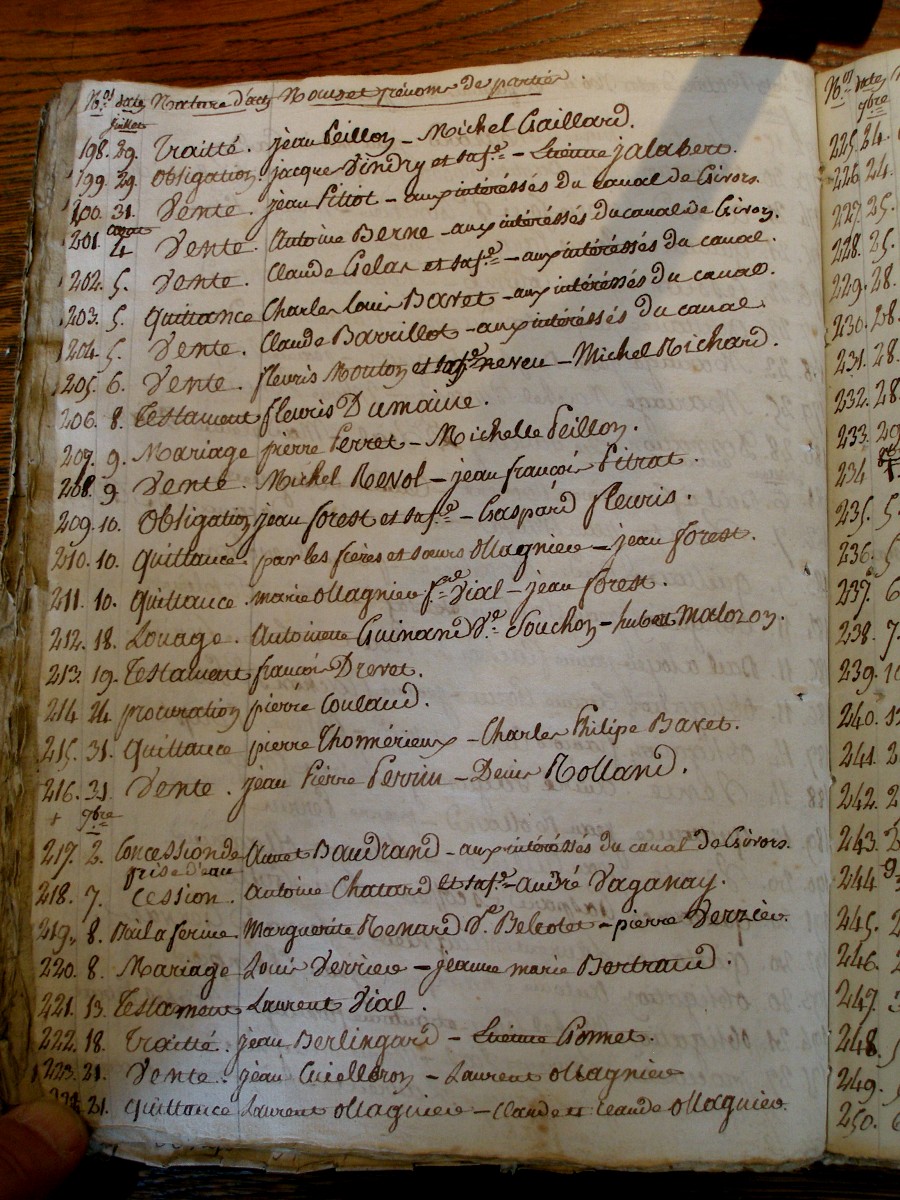 N.os dates Nature d'actes Noms et prénoms de parties
juillet
198. 29. Traitté. jean Peillon - Michel Gaillard.
199. 29. Obligation. jacque Vindry et sa f.e - Etienne jalabert.
200. 31. Vente. jean Pitiot - aux intéréssés du canal de Givors.
aoust
201. 4 Vente. Antoine Berne - aux intéréssés du canal de Givors.
202. 5. Vente. Claude Gelas et sa f.e - aux intéréssés du canal.
203. 5. Quittance Charles Louis Bavet - aux intéréssés du canal.
204. 5. Vente. Claude Barrillot - aux intéréssés du canal
205. 6. Vente. fleuris Mouton et neveu - Michel Richard.
206. 8. Testament fleuris Dumaine.
207. 9. Mariage pierre Perret - Michelle Peillon.
208. 9 Vente. Michel Revol - jean françois Pitrat.
209. 10. Obligation jean forest et sa f.e - Gaspard fleuris.
210. 10. Quittance. par les frères et sœurs Ollagnier - jean forest.
211. 10. Quittance. marie Ollagnier f.e Vial - jean forest.
212. 18. Louage. Antoinette Guinand V.e Souchon - hubert Malozon.
213. 19. Testament françois Drevet.
214 24 procuration pierre Coulaud.
215. 31. Quittance pierre Thomérieux - Charles Philipe Bavet.
216. 31 Vente. jean Pierre Perrin - Denis Rolland.
+ 7bre
217. 2. Concession de Annet Baudrand - aux intéréssés du canal de Givors.
prise d'eau
218. 7. Cession. Antoine Chatard et sa f.e - andré Vaganay.
219. 8. Bail a ferme. Marguerite Renard V.e - pierre Verzier.
220. 8. Mariage Louis Verrier - jeanne marie Bertrand.
221. 13. Testament Laurent Vial.
222. 18. Traitté. jean Berlingard - Etienne Gonnet.
223. 21. Vente. jean - Laurent Ollagnier
224 21. Quittance Laurent Ollagnier - Claude et Claude Ollagnier.
N.os dates
9bre
225. 24.
226 24.
227. 25.
228. 25.
229. 28.
230. 28.
231. 28.
232. 28.
233. 29
234
235. 5.
236. 5
237. 6
238. 7.
239. 10
240. 1
241. 2
242. 2
243. 2
244
245. 2
246. 2
247. 3
248. 5
249. 5
250. 6